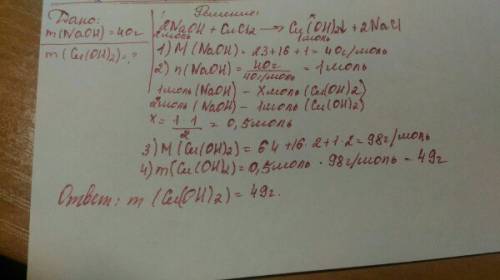 Дано:
m(NaOH)=40г
m(Cu(OH)2)-?
Решение:
2NaOH + CuCl2 → Cu(OH)2↓ + 2NaCl
2моль 1моль
1) M(NaOH) = 23+16+1 = 40г/моль
2) n(NaOH) = 40г / 40г/моль = 1моль
1моль(NaOH) - Xмоль(Cu(OH)2)
2моль(NaOH) - 1моль(Cu(OH)2)
x = 1·1 / 2 = 0,5моль
3) M(Cu(OH)2) = 64+16·2+1·2=98г/моль
4) m(Cu(OH)2) = 0,5моль · 98г/моль = 49г
Ответ: m (Cu(OH)2) = 49г.